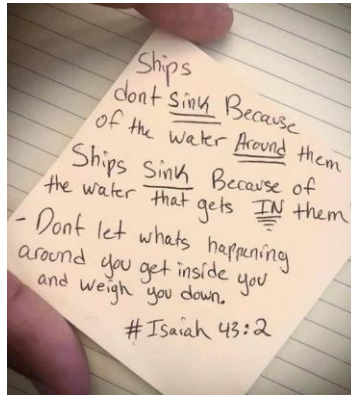 Ships
dont Sink Because
of the water Around them
Ships Sink Because of
the water that gets IN them
- Dont let whats happening
around you get inside you
and weigh you down.
# Isaiah 43:2